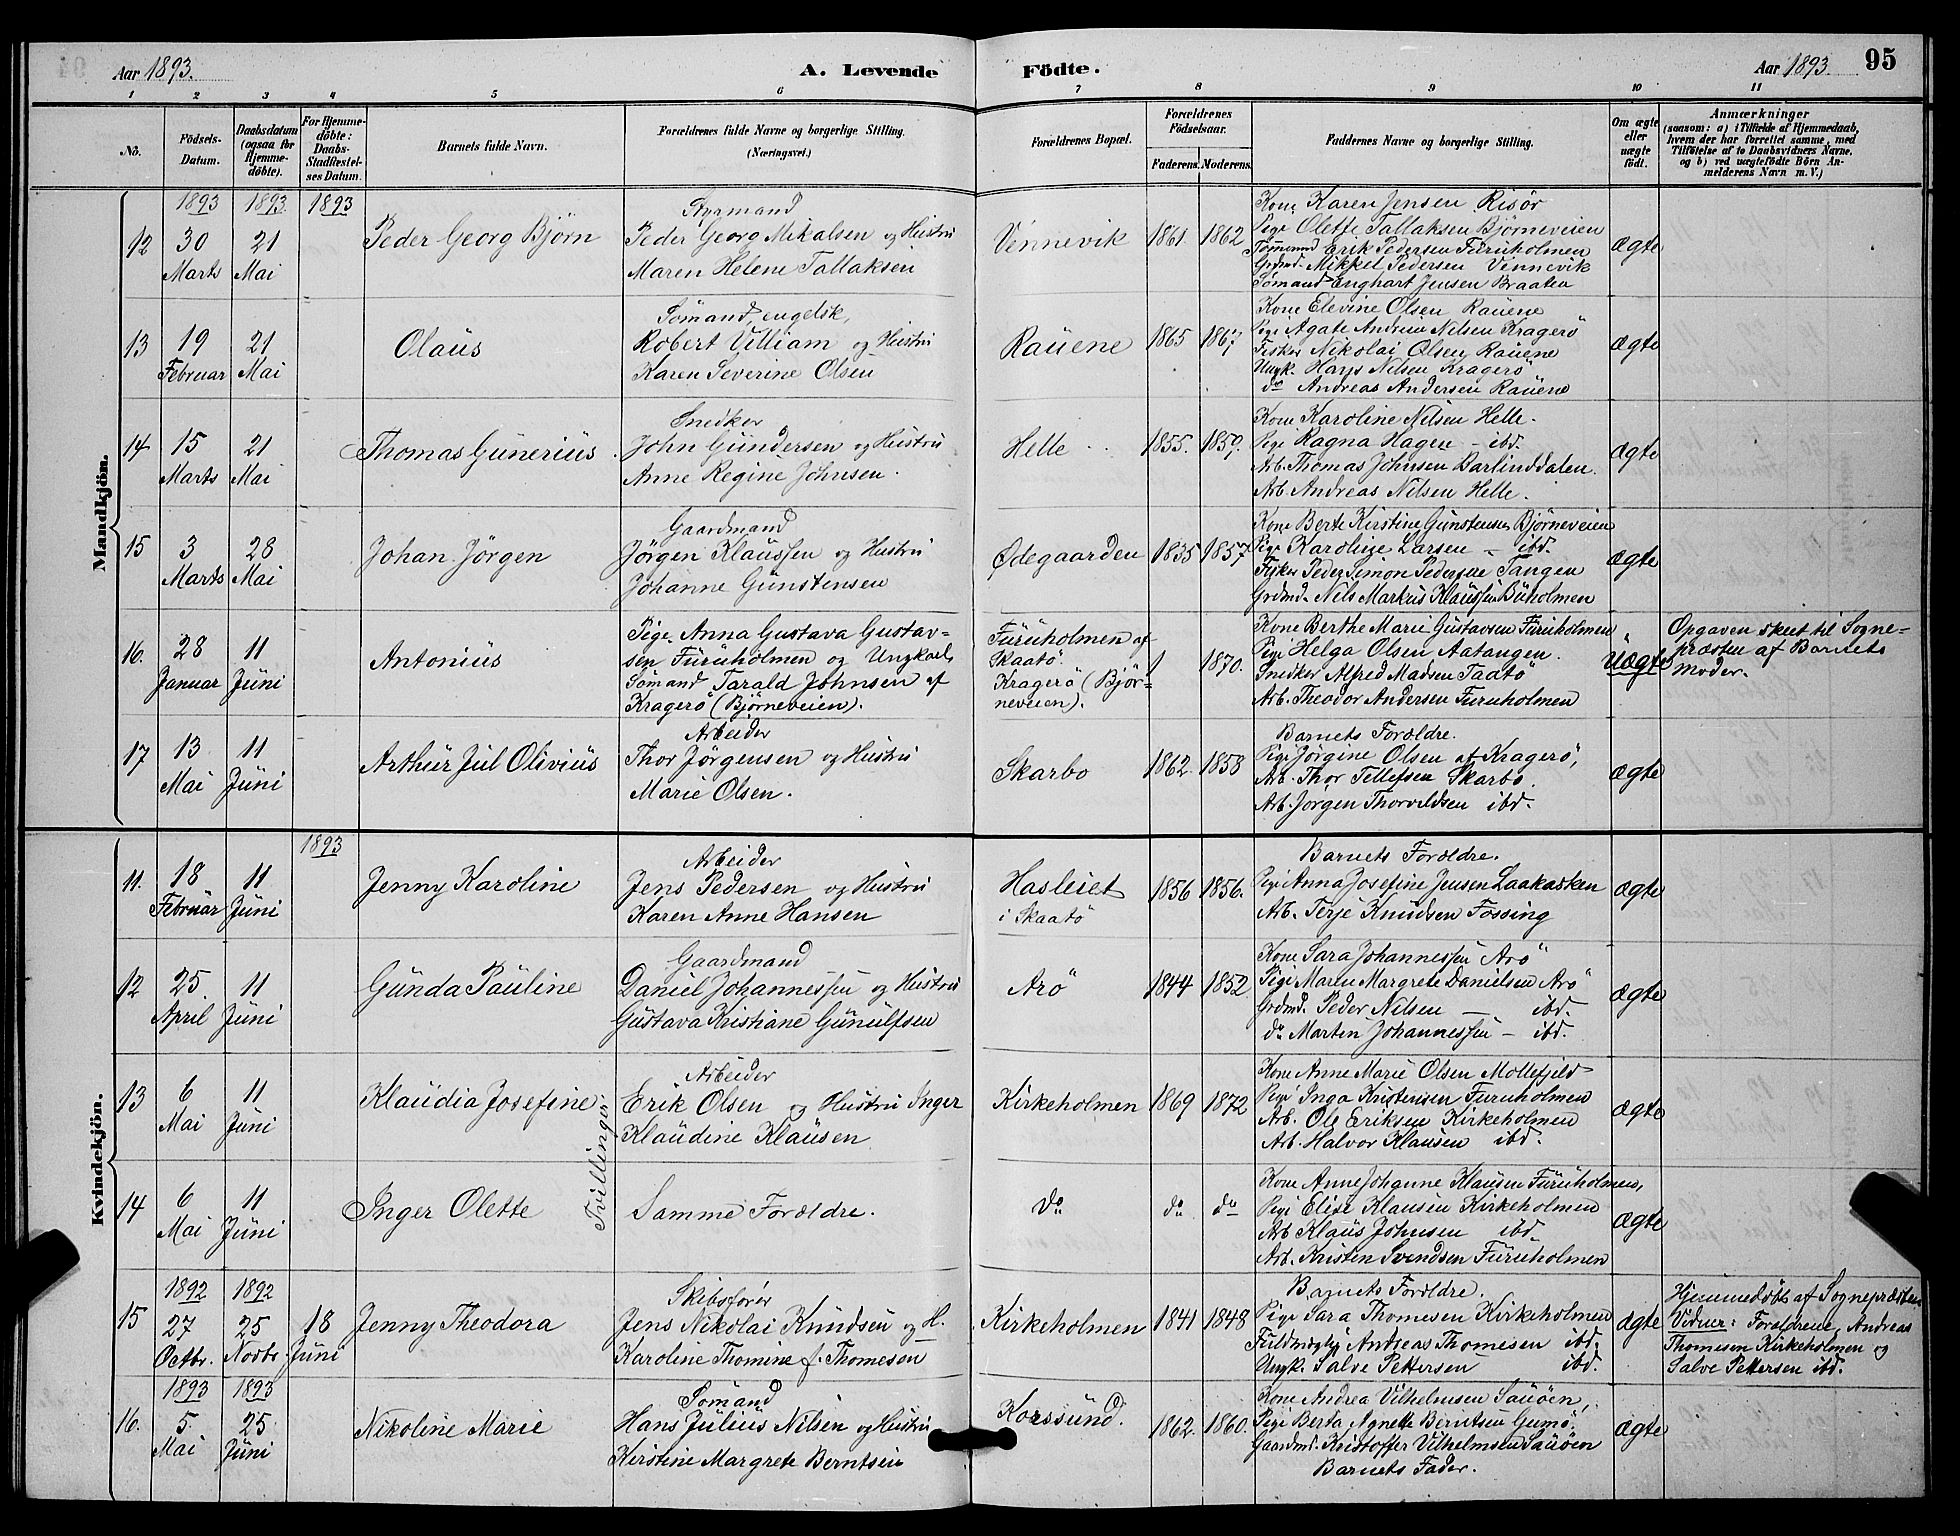 Aar 1893.
A. Levende Födte.
Aar 1893. 95
1 2 3 4 5 6 7 8 9 10 11
No.
Födsels-Datum.
Daabsdatum (ogsaa for Hjemmedöbte).
For Hjemmedöbte: Daabs-Stadfæstelses Datum.
Barnets fulde Navn.
Forældrenes fulde Navne og borgerlige Stilling. (Næringsvei.)
Forældrenes Bopæl.
Forældrenes Födselsaar.
Faderens. Moderens.
Faddernes Navne og borgerlige Stilling.
Om ægte eller uægte födt.
Anmærkninger
(saasom: a) i Tilfælde af Hjemmedaab, hvem der har forrettet samme, med Tilföielse af to Daabsvidners Navne, og b) ved uægtefödte Börn Anmelderens Navn m. V.)
Mandkjön.
1893 1893 1893
12
30 Marts
21 Mai
Peder Georg Björn
Styrmand
Peder Georg Mikalsen og Hustru
Maren Helene Tallaksen
Vennevik
1861 1862
Kone Karen Jensen Risör
Pige Olette Tallaksen Björneveien
Tömmermd Erik Pedersen Furuholmen
Grdmd. Mikkel Pedersen Vennevik
Sömand Enghart Jensen Braaten
ægte
13
19 Februar
21 Mai
Olaus
Sömand, engelsk,
Robert Villiam og Hustru
Karen Severine Olsen
Rauene
1865 1867
Kone Elevine Olsen Rauene
Pige Agate Andrine Nilsen Kragerö
Fisker Nikolai Olsen Rauene
Ungk. Hans Nilsen Kragerö
do Andreas Andersen Rauene
ægte
14
15 Marts
21 Mai
Thomas Gunerius
Snedker
John Gundersen og Hustru
Anne Regine Johnsen.
Helle
1855. 1859.
Kone Karoline Nilsen Helle.
Pige Ragna Hagen - ibd.
Arb. Thomas Johnsen Barlinddalen.
Arb. Andreas Nilsen Helle.
ægte
15
3 Marts
28 Mai
Johan Jörgen
Gaardmand
Jörgen Klaussen og Hustru
Johanne Gunstensen
Ødegaarden
1835 1857
Kone Berte Kirstine Gunstensen Björneveien
Pige Karoline Larsen - ibd.
Fisker Peder Simon Pedersen Tangen
Grdmd. Nils Markus Klaussen Buholmen
ægte
16.
28 Januar
11 Juni
Antonius
Pige Anna Gustava Gustav-
sen Furuholmen og Ungkarl
Sömand Tarald Johnsen af
Kragerö (Björneveien).
Furuholmen af
Skaatö.
Kragerö (Björ-
neveien).
1870.
Kone Berthe Marie Gustavsen Furuholmen
Pige Helga Olsen Aatangen.
Snedker Alfred Madsen Taatö
Arb. Theodor Andersen Furuholmen
Uægte
Opgaven skeet til Sogne-
præsten af Barnets
Moder.
17
13 Mai
11 Juni
Arthur Jul Olivius
Arbeider
Thor Jörgensen og Hustru
Marie Olsen.
Skarbo
1862. 1858
Barnets Forældre.
Pige Jörgine Olsen af Kragerö,
Arb. Thor Tellefsen Skarbo.
Arb. Jörgen Thorvildsen ibd.
ægte
Kvindekjön.
1893
11.
18 Februar
11 Juni
Jenny Karoline
Arbeider
Jens Pedersen og Hustru
Karen Anne Hansen
Hasleiet
i Skaatö
1856 1856.
Barnets Forældre.
Pige Anna Josefine Jensen Laakasken
Arb. Terje Knudsen Fossing
ægte
12
25 April
11 Juni
Gunda Pauline
Gaardmand
Daniel Johannessen og Hustru
Gustava Kristiane Gunulfsen
Arö
1844 1852
Kone Sara Johannessen Arö
Pige Maren Margrete Danielsen Arö
Grdmd. Peder Nilsen - ibd.
do Martin Johannessen - ibd.
ægte
13
6 Mai
11 Juni
Klaudia Josefine
Tvillinger.
Arbeider
Erik Olsen og Hustru Inger
Klaudine Klausen
Kirkeholmen
1869 1872
Kone Anne Marie Olsen Mollefjeld
Pige Inga Kristensen Furuholmen
Arb. Ole Eriksen Kirkeholmen
Arb. Halvor Klausen ibd.
ægte
14
6 Mai
11 Juni
Inger Olette
Samme Forældre.
do
do do
Kone Anne Johanne Klausen Furuholmen,
Pige Elise Klausen Kirkeholmen
Arb Klaus Johnsen ibd.
Arb. Kristen Svendsen Furuholmen
ægte
15
1892 27 Octbr.
1892 25 Novbr.
18 Juni
Jenny Theodora
Skibsförer
Jens Nikolai Knudsen og H.
Karoline Thomine f. Thomesen
Kirkeholmen
1841 1848
Barnets Forældre.
Pige Sara Thomesen Kirkeholmen
Fuldmægtig Andreas Thomesen ibd.
Ungk. Salve Pettersen ibd.
ægte
Hjemmedöbt af Sognepræsten
Vidner: Forældrene, Andreas
Thomesen Kirkeholmen og
Salve Pettersen ibd.
16.
1893 5 Mai
1893 25 Juni
Nikoline Marie
Sömand
Hans Julius Nilsen og Hustru
Kirstine Margrete Berntsen
Korssund.
1862. 1860.
Kone Andrea Vilhelmsen Sauöen,
Pige Berta Agnette Berntsen Gumö,
Gaardmd. Kristoffer Vilhelmsen Sauöen
Barnets Fader.
ægte